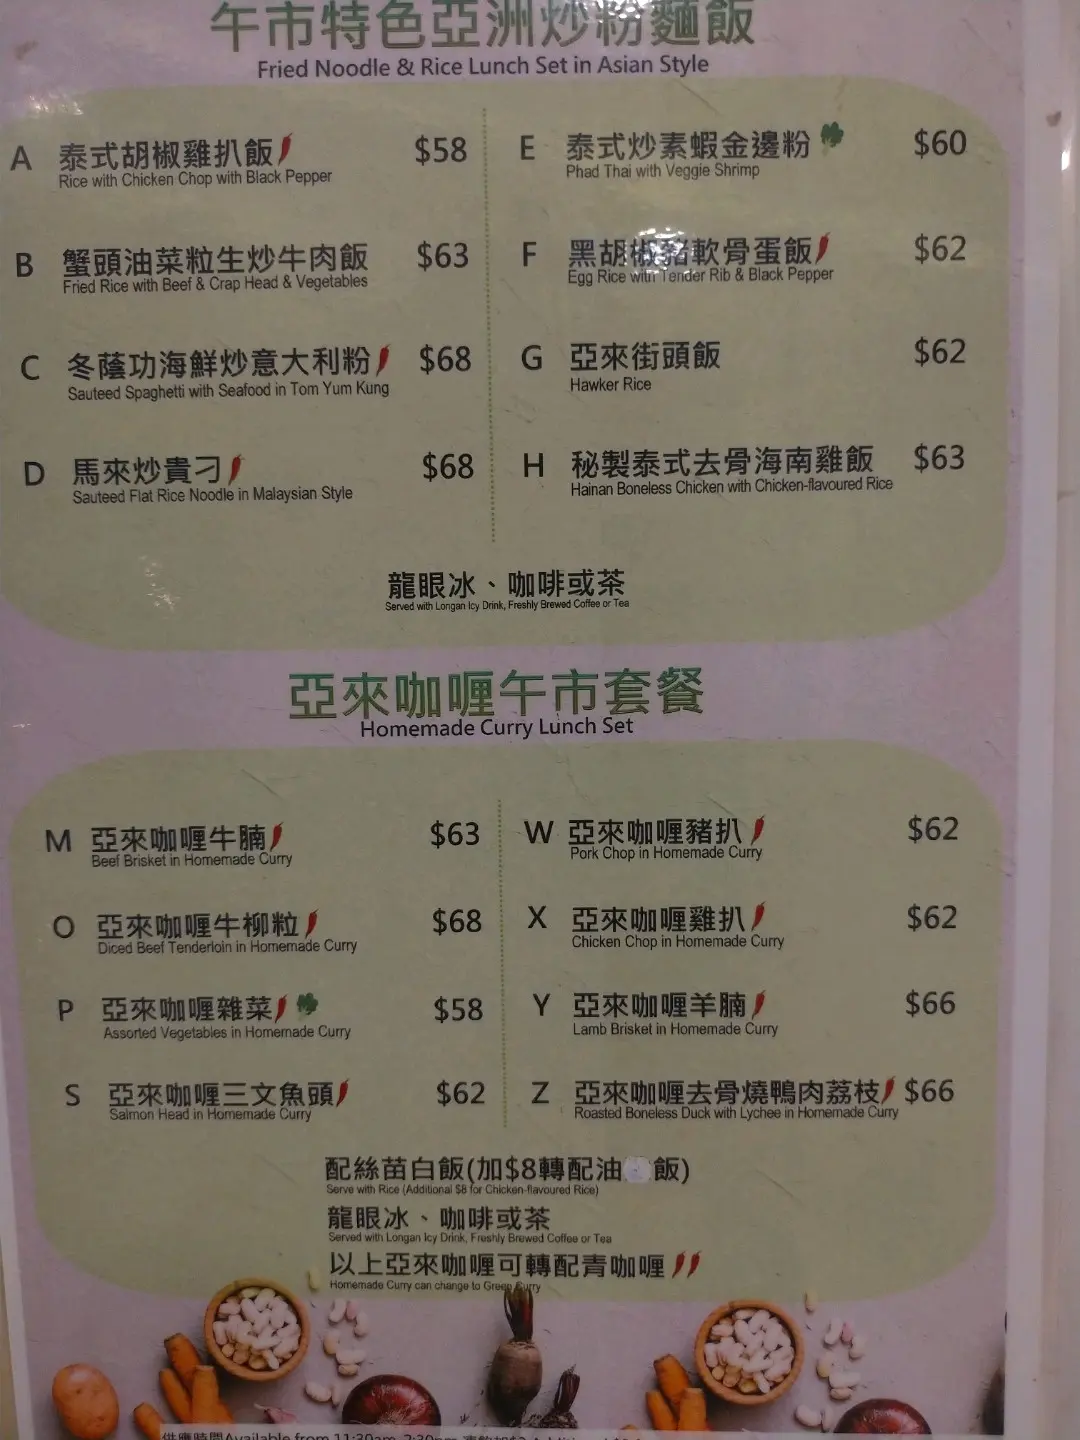 午市特色亞洲炒粉麵飯
Fried Noodle & Rice Lunch Set in Asian Style
A 泰式胡椒雞扒飯 $58
Rice with Chicken Chop with Black Pepper
B 蟹頭油菜粒生炒牛肉飯 $63
Fried Rice with Beef & Crap Head & Vegetables
C 冬蔭功海鮮炒意大利粉 $68
Sauteed Spaghetti with Seafood in Tom Yum Kung
D 馬來炒貴刁 $68
Sauteed Flat Rice Noodle in Malaysian Style
E 泰式炒素蝦金邊粉 $60
Phad Thai with Veggie Shrimp
F 黑胡椒豬軟骨蛋飯 $62
Egg Rice with Tender Rib & Black Pepper
G 亞來街頭飯 $62
Hawker Rice
H 秘製泰式去骨海南雞飯 $63
Hainan Boneless Chicken with Chicken-flavoured Rice
龍眼冰、咖啡或茶
Served with Longan Icy Drink, Freshly Brewed Coffee or Tea
亞來咖喱午市套餐
Homemade Curry Lunch Set
M 亞來咖喱牛腩 $63
Beef Brisket in Homemade Curry
O 亞來咖喱牛柳粒 $68
Diced Beef Tenderloin in Homemade Curry
P 亞來咖喱雜菜 $58
Assorted Vegetables in Homemade Curry
S 亞來咖喱三文魚頭 $62
Salmon Head in Homemade Curry
W 亞來咖喱豬扒 $62
Pork Chop in Homemade Curry
X 亞來咖喱雞扒 $62
Chicken Chop in Homemade Curry
Y 亞來咖喱羊腩 $66
Lamb Brisket in Homemade Curry
Z 亞來咖喱去骨燒鴨肉荔枝 $66
Roasted Boneless Duck with Lychee in Homemade Curry
配絲苗白飯(加$8轉配油 飯)
Serve with Rice (Additional $8 for Chicken-flavoured Rice)
龍眼冰、咖啡或茶
Served with Longan Icy Drink, Freshly Brewed Coffee or Tea
以上亞來咖喱可轉配青咖喱
Homemade Curry can change to Green Curry
供應時間Available from 11:30am-2:30pm